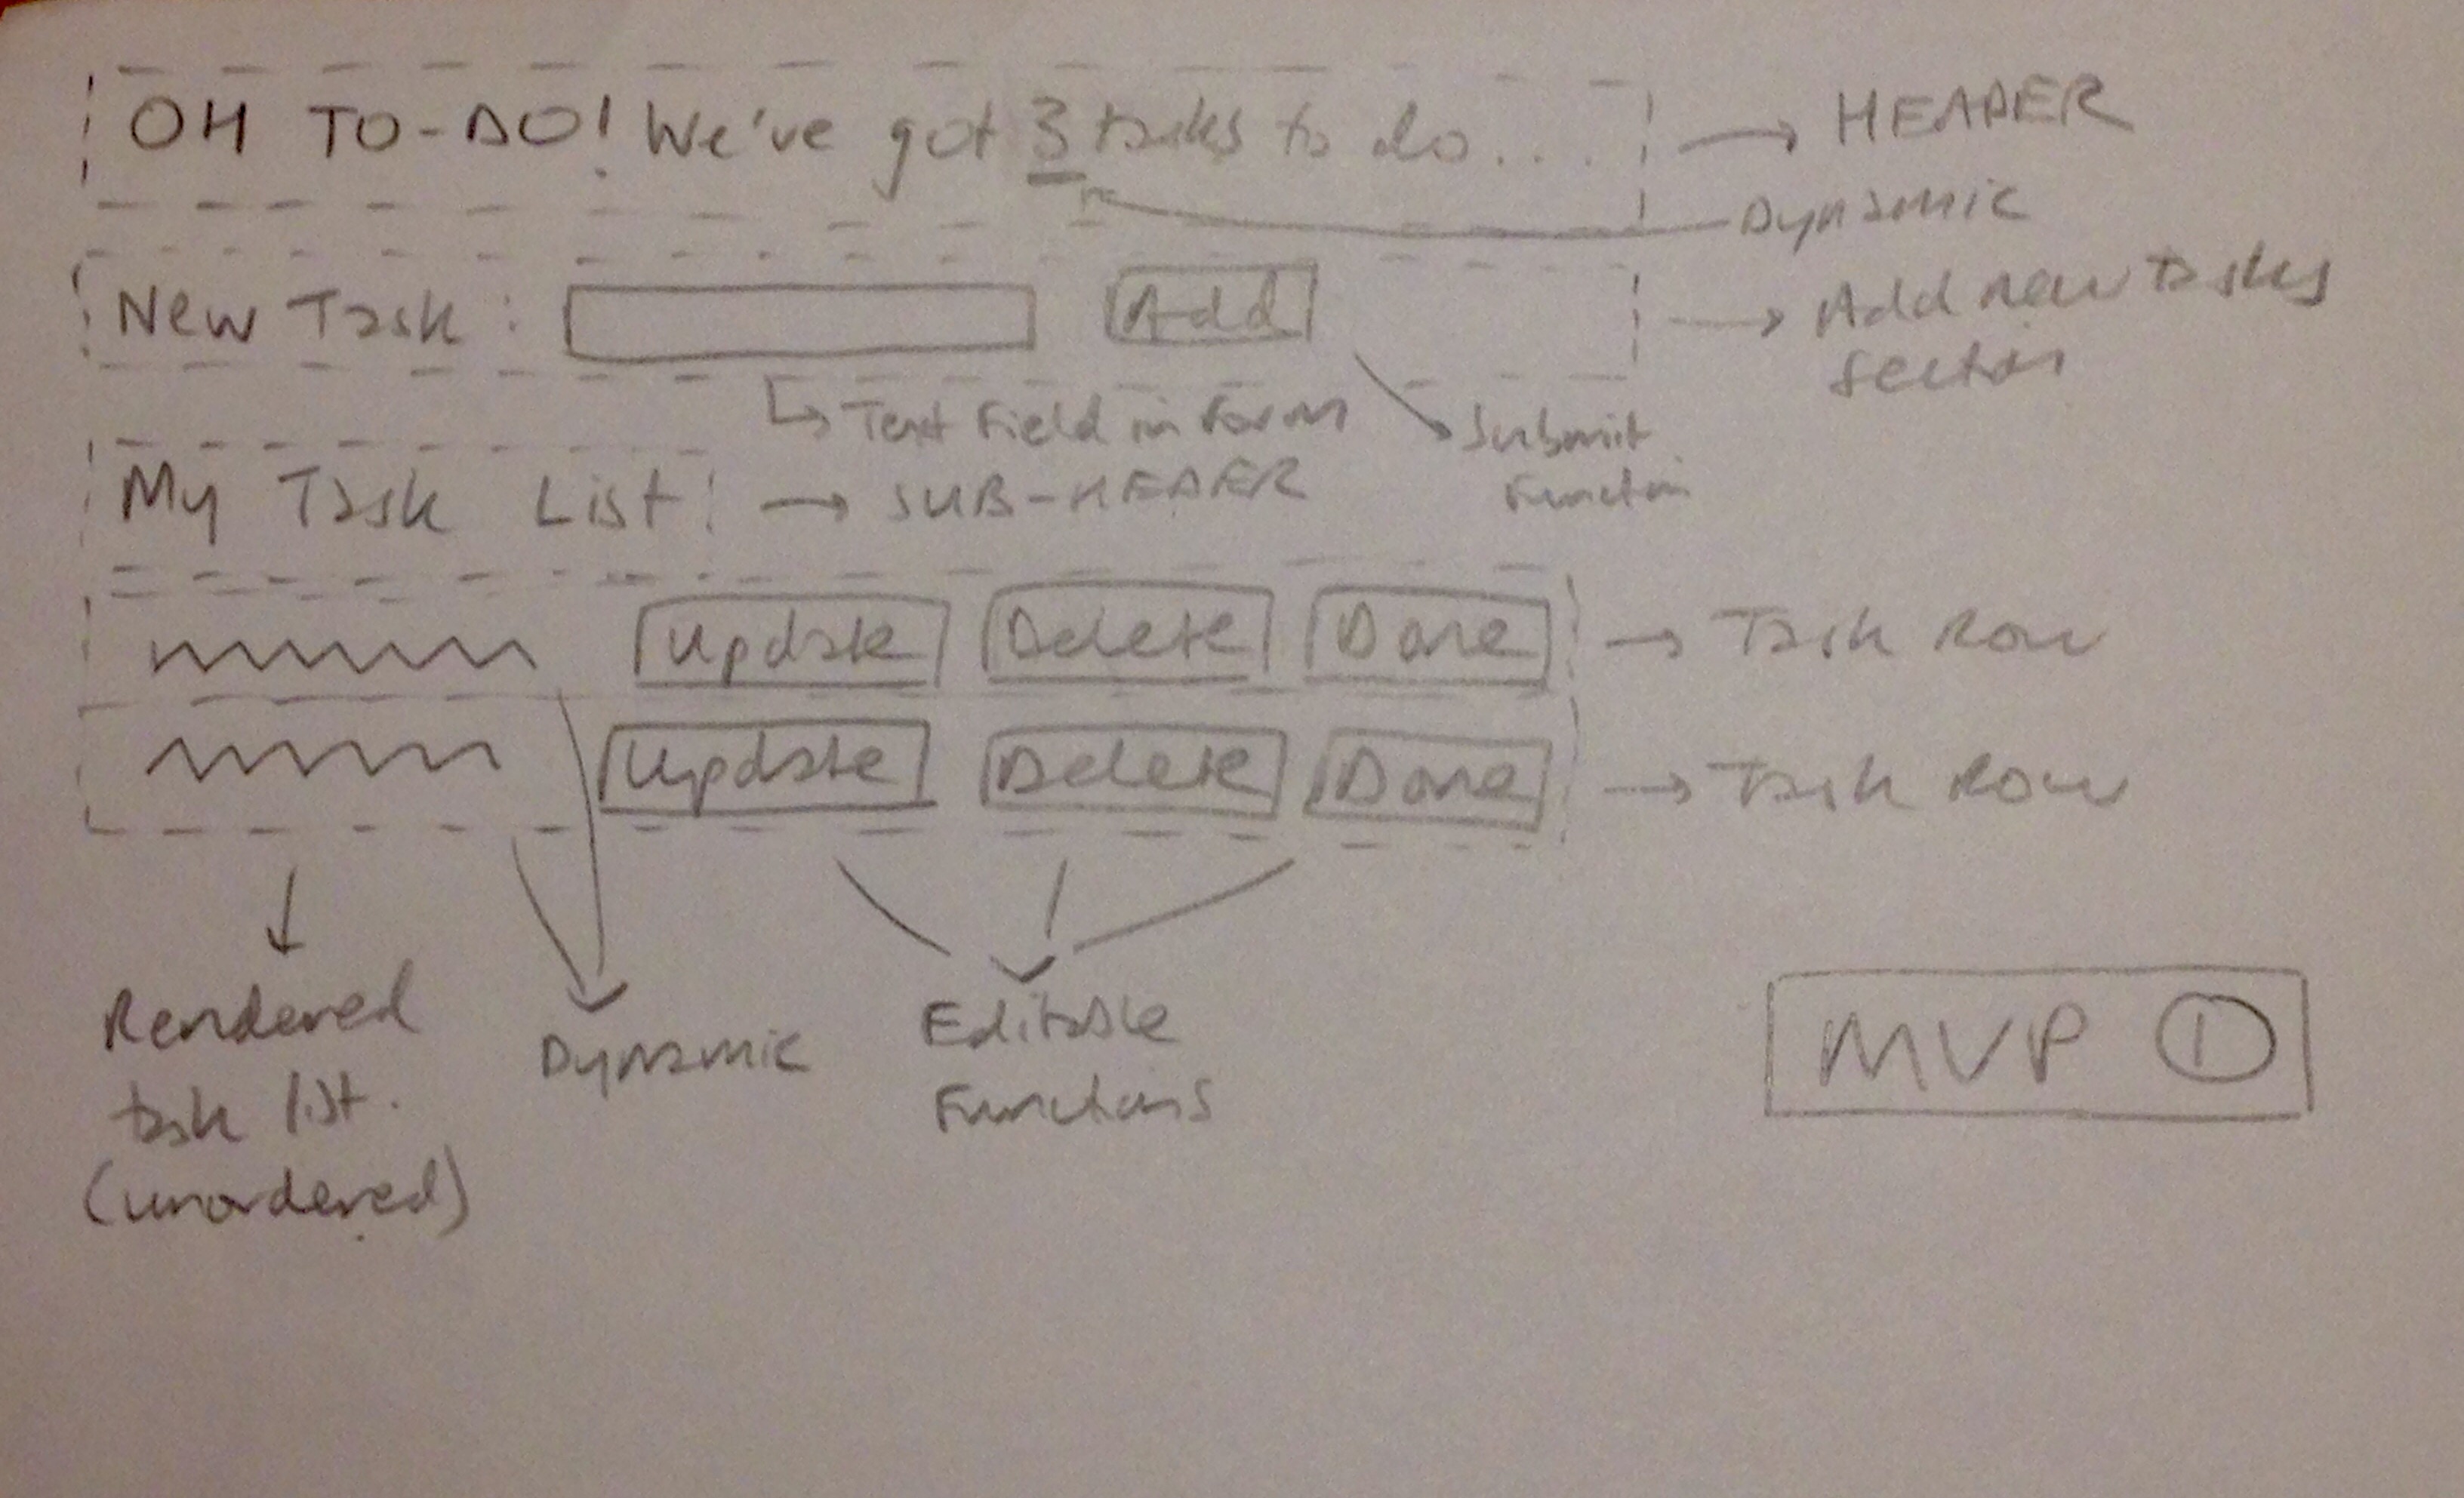 OH TO-DO! We've got 3 tasks to do... HEADER
Dynamic
New Task: Add Add new tasks
section
Text Field in Form Submit
Function
My Task List SUB-HEADER
Update Delete Done Task Row
Update Delete Done Task Row
Rendered
task list.
(unordered)
Dynamic
Editable
Functions
MVP 1